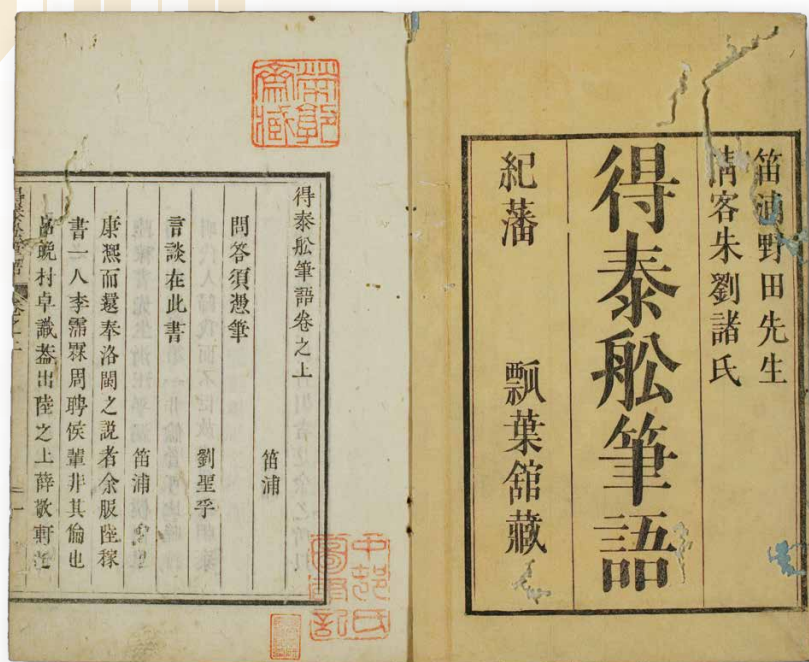 笛浦野田先生
清客朱劉諸氏
得泰舩筆語
紀藩　瓢葉舘藏
得泰舩筆語卷之上
笛浦
問答須憑筆
劉聖孚
言談在此書
笛浦
康熙而還奉洛閩之説者余服陸稼
書一人李霈霖周聘侯輩非其倫也
呂晩村卓識葢出陸之上薛敬軒